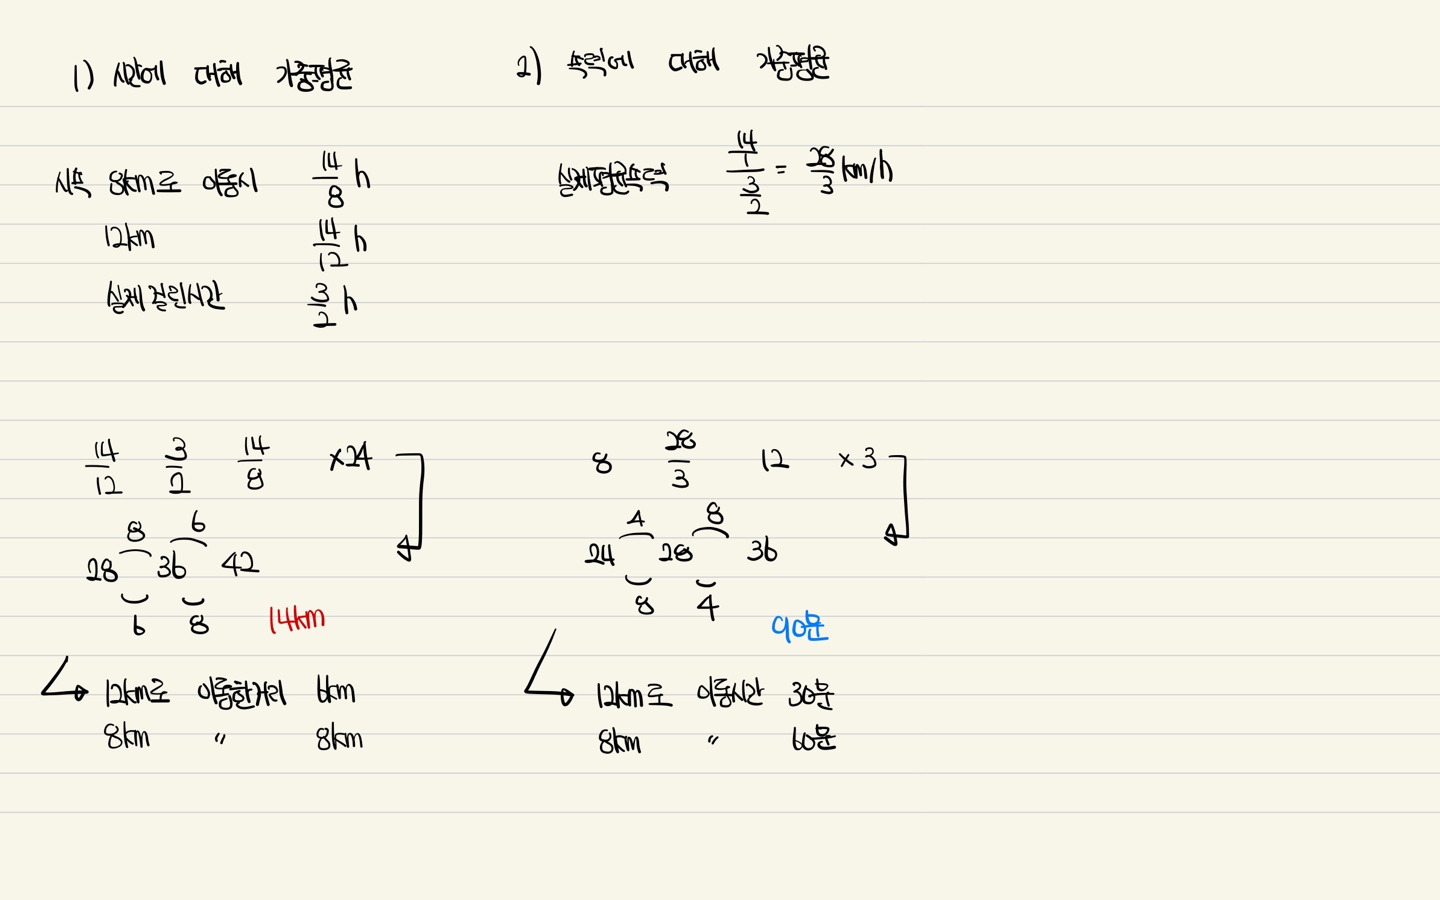 1) 시간에 대해 가중평균
시속 8km로 이동시 14/8 h
12km 14/12 h
실제 걸린시간 3/2 h
14/12 3/2 14/8 ×24
8 6
28 36 42
6 8 14km
12km로 이동한거리 6km
8km 〃 8km
2) 속력에 대해 가중평균
실제평균속력 14/1 / 3/2 = 28/3 km/h
8 28/3 12 ×3
4 8
24 28 36
8 4
90분
12km로 이동시간 30분
8km 〃 60분